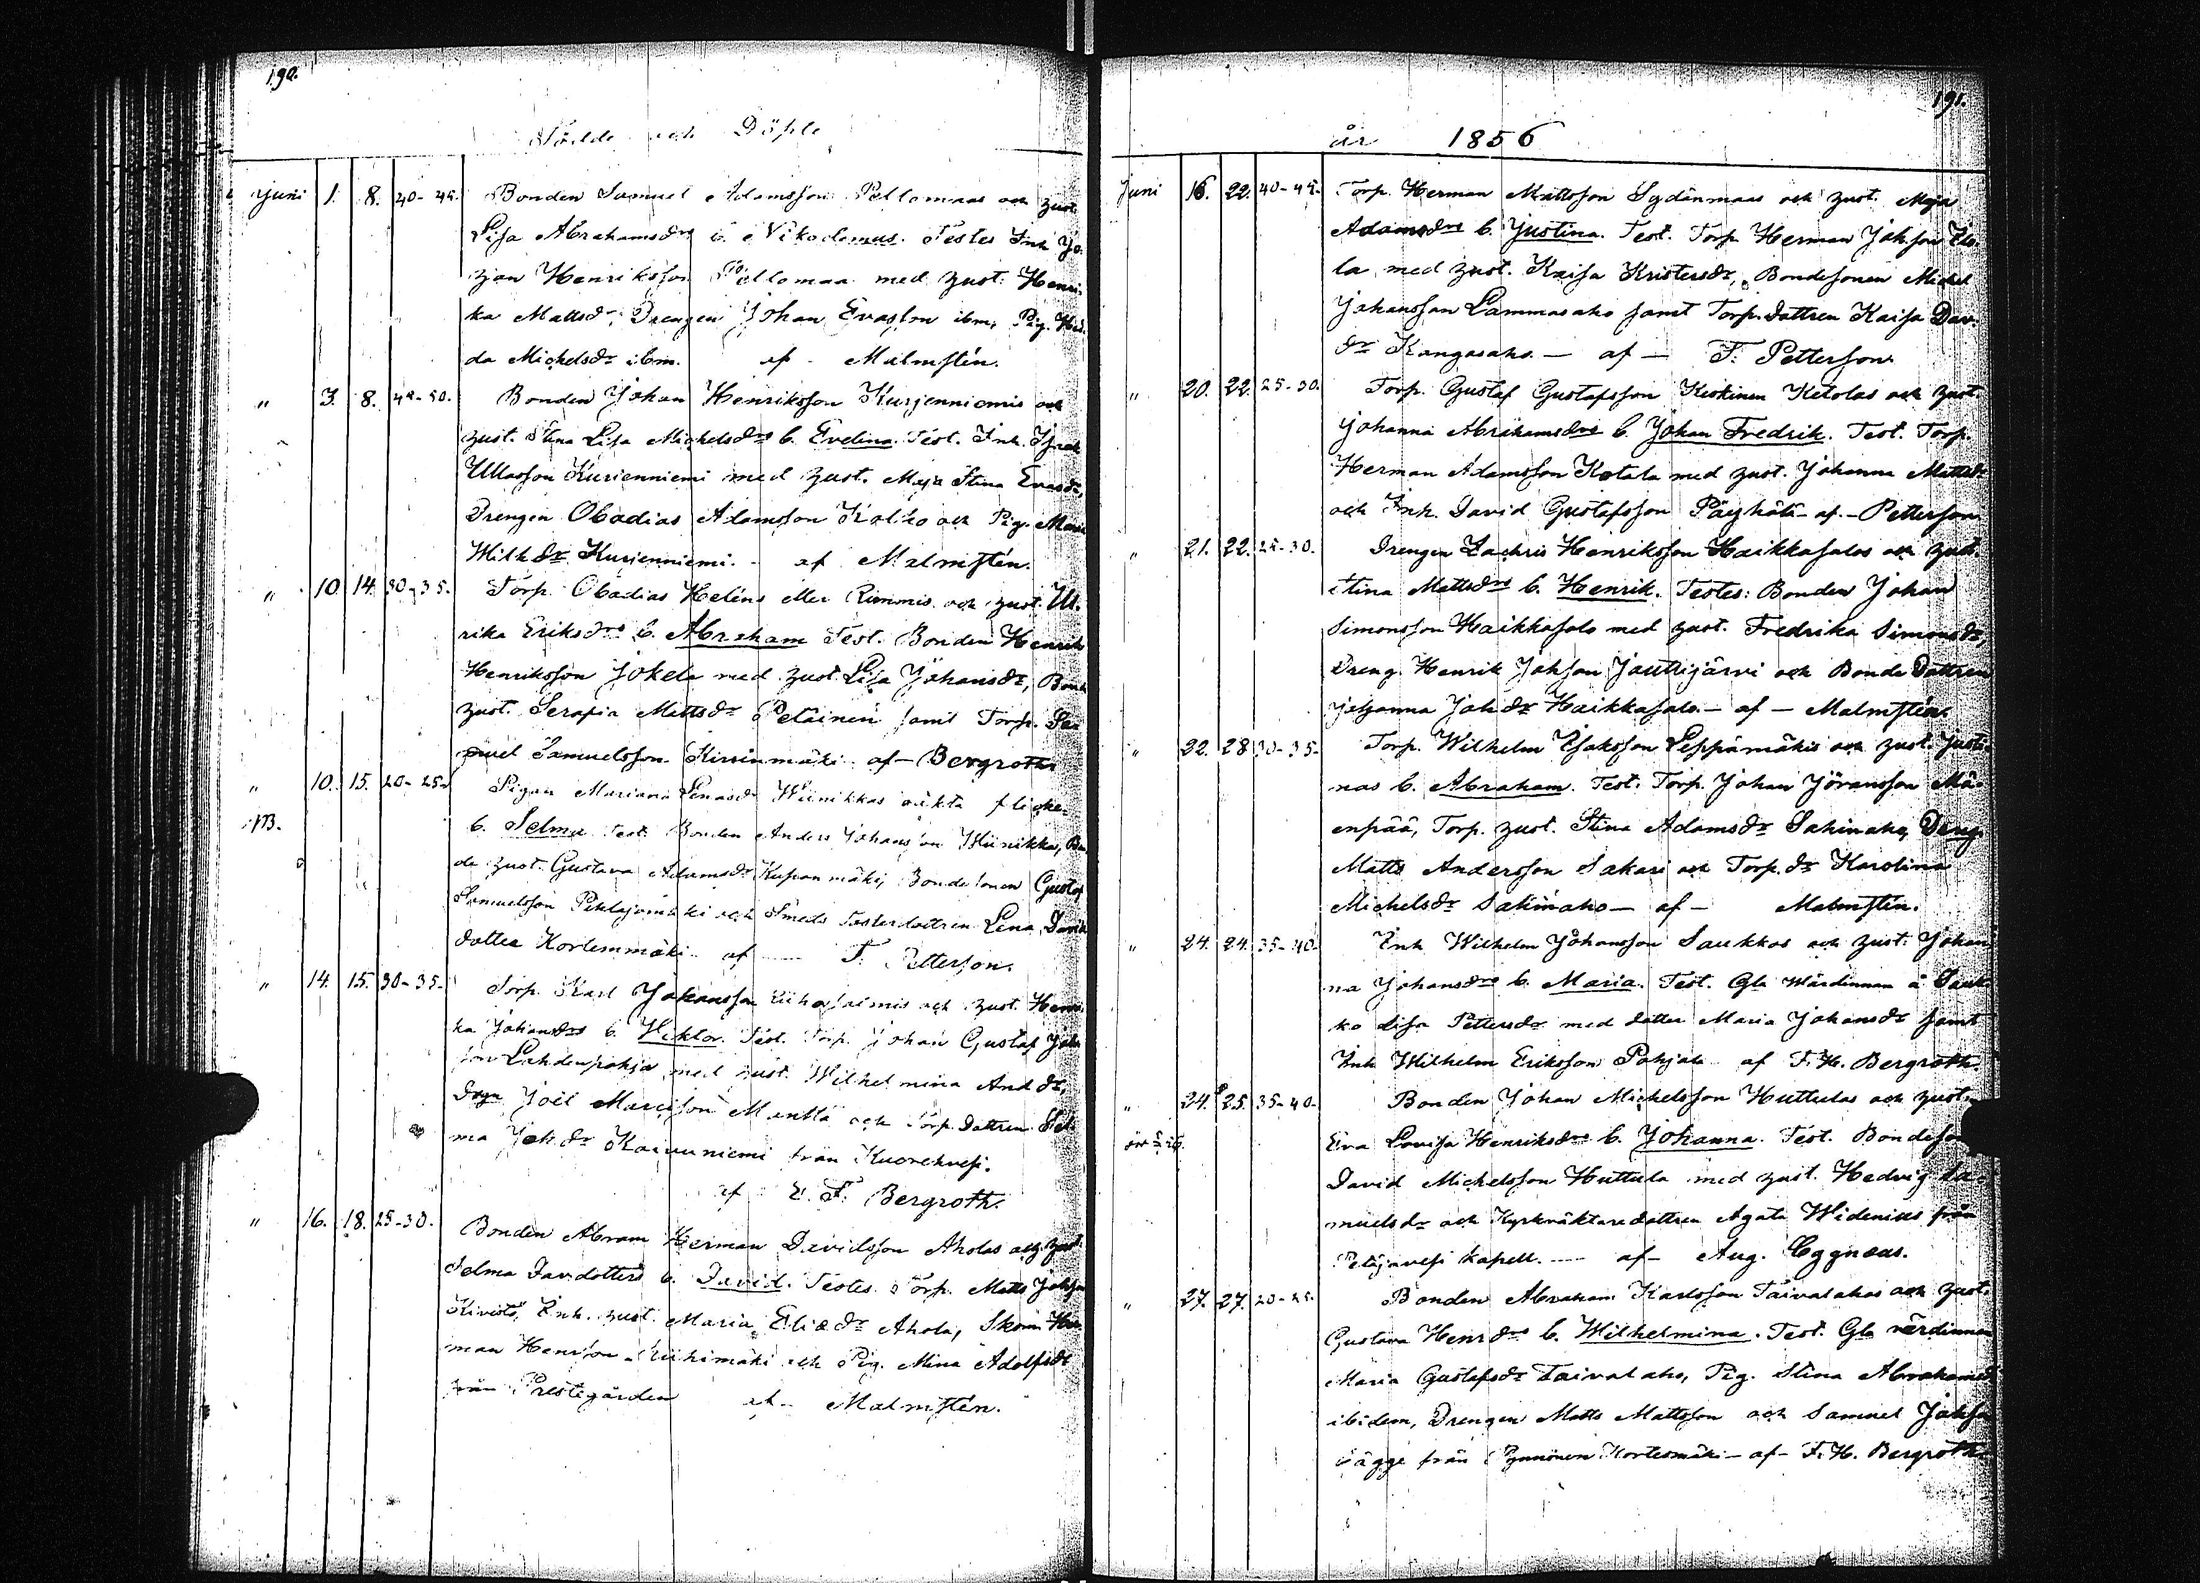 190.
Födde och Döpte
Juni 1. 8. 40-45. Bonden Samuel Adamsson Pellomaas och hust.
Lisa Abrahamsdrs b. Nikodemus. Testes Inh. Jö-
rjan Henriksson Pellomaa med hust. Henri-
ka Mattsdr, Drengen Johan Evasson ibm, Pig. Hed-
da Michelsdr ibm. af - Malmstén.
" 3. 8. 45-50. Bonden Johan Henriksson Kurjenniemis och
hust. Stina Lisa Michelsdrs b. Evelina. Test. Inh. Isak
Ullasson Kurjenniemi med hust. Maja Stina Evasdr,
Drengen Obadias Adamsson Kalho och Pig. Maria
Wilhdr Kurjenniemi. - af Malmstén.
" 10. 14. 30-35. Torp. Obadias Heléns eller Rimmis och hust. Ul-
rika Eriksdrs b. Abraham Test. Bonden Henrik
Henriksson Jokela med hust. Lisa Johansdr, Bond.
hust. Serafia Mattsdr Petäinen samt Torp. Sa-
muel Samuelsson Kirrinmäki af - Bergroth.
" 10. 15. 20-25. Pigan Mariana Lenasdr Wiinikkas oäkta flicka
NB. b. Selma Test. Bonden Anders Johansson Wiinikka, Bon-
de hust. Gustava Adamsdr Kupanmäki, Bondesonen Gustaf
Samuelsson Piklajamäki och Smeds dottren Lena David
dotter Kortemmäki af F. Petterson.
" 14. 15. 30-35. Torp. Karl Johansson och hust. Henri-
ka Johansdrs b. Wiktor. Test. Torp. Johan Gustaf Joh-
son Lehdenpohja med hust. Wilhelmina Anddr,
Drgn Joel Marcisson Mantta och Torp. dottren Sel-
ma Johdr Kaivuniemi från Kuorehvesi.
af F. Bergroth.
" 16. 18. 25-30. Bonden Abram Herman Davidsson Aholas och hust.
Selma Davdotters b. David. Testes Torp. Matts Johsson
Kivistö, Inh. hust. Maria Eliædr Ahola, Skom. Her-
man Henrson Riihimäki och Pig. Mina Adolfsdr
från Prestegården af - Malmstén.
191.
år 1856
Juni 16. 22. 40-45. Torp. Herman Mattsson Sydänmaas och hust. Maja
Adamsdrs b. Justina. Test. Torp. Herman Johsson
la med hust. Kaisa Kristersdr, Bondesonen Michel
Johansson Lammasaho samt Torp. dottren Kaisa Dav-
dr Kangasaho. - af - F. Petterson.
" 20. 22. 25-30. Torp. Gustaf Gustafsson Keskinen Ketolas och hust.
Johanna Abrahamsdrs b. Johan Fredrik. Test. Torp.
Herman Adamsson Ketola med hust. Johanna Mattsdr
och Inh. David Gustafsson - af. - Petterson.
" 21. 22. 25-30. Drengen Zachris Henriksson Haikkasalos och hust.
Stina Mattsdrs b. Henrik. Testes: Bonden Johan
Simonsson Haikkasalo med hust. Fredrika Simonsdr,
Dreng. Henrik Johsson Jouttijärvi och Bonde Dottren
Johanna Johdr Haikkasalo. - af - Malmstén.
" 22. 28 30-35. Torp. Wilhelm Isaksson Leppämäkis och hust. Justi-
nas b. Abraham. Test. Torp. Johan Jöransson Mä-
enpää, Torp. hust. Stina Adamsdr Sahinaho, Dreng
Matts Andersson Sakari och Torp. dr Karolina
Michelsdr Sahinaho - af - Malmstén.
" 24. 24. 35-40. Inh. Wilhelm Johansson Saukkos och hust. Johan-
na Johansdrs b. Maria. Test. Gla Wärdinnan å Sauk-
ko Lisa Pettersdr med dotter Maria Johansdr samt
Inh. Wilhelm Eriksson Pohjala af F. H. Bergroth.
" 24. 25. 35-40. Bonden Johan Michelsson Huttulas och hust.
Eva Lovisa Henriksdrs b. Johanna. Test. Bondeson
David Michelsson Huttula med hust. Hedvig Sa-
muelsdr och Kyrkväktaredottren Agata Widenius från
Petäjävesi kapell. - af - Aug. Cygnæus.
" 27. 27. 20-25. Bonden Abraham Karlsson Taivalahos och hust.
Gustava Henrdrs b. Wilhelmina. Test. Gla värdinnan
Maria Gustafsdr Taivalaho, Pig. Stina Abrahamsd
ibidem, Drengen Matts Mattsson och Samuel Johsson
bägge från Pynnönen Kortesmäki - af - F. H. Bergroth.